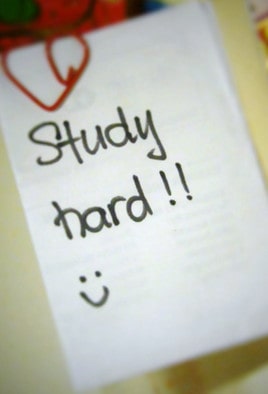 Study
hard !!